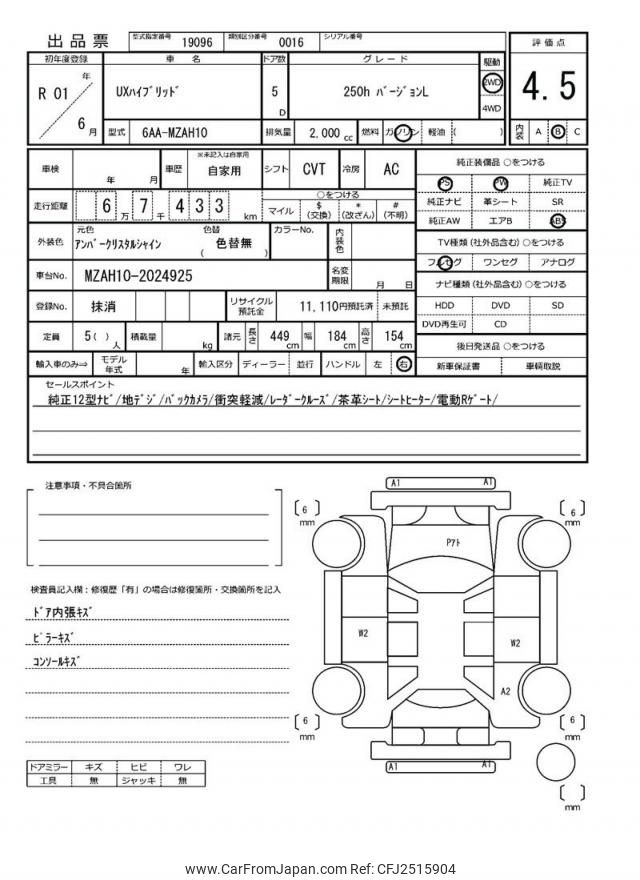 出品票
型式指定番号 19096 類別区分番号 0016 シリアル番号
評価点
4.5
内装 A B C
初年度登録 車名 ドア数 グレード 駆動
R 01 年 6 月
UXハイブリッド 5 D 250h バージョンL 2WD 4WD
型式 6AA-MZAH10 排気量 2,000 cc 燃料 ガソリン 軽油 ( )
車検 年 月 車歴 ※未記入は自家用 自家用 シフト CVT 冷房 AC
走行距離 6 万 7 千 4 3 3 km
○をつける
マイル $ (交換) * (改ざん) # (不明)
外装色 元色 アンバークリスタルシャイン 色替 ( 色替無 ) カラーNo. 内装色
車台No. MZAH10-2024925 名変期限 月 日
登録No. 抹消 リサイクル預託金 11,110円預託済 未預託
定員 5 ( ) 人 積載量 kg 諸元 長さ 449 cm 幅 184 cm 高さ 154 cm
輸入車のみ⇒ モデル年式 年 輸入区分 ディーラー 並行 ハンドル 左 右
純正装備品 ○をつける
PS PW 純正TV
純正ナビ 革シート SR
純正AW エアB ABS
TV種類 (社外品含む) ○をつける
フルセグ ワンセグ アナログ
ナビ種類 (社外品含む) ○をつける
HDD DVD SD
DVD再生可 CD
後日発送品 ○をつける
新車保証書 車輌取説
セールスポイント
純正12型ナビ/地デジ/バックカメラ/衝突軽減/レーダークルーズ/茶革シート/シートヒーター/電動Rゲート/
注意事項・不具合箇所
検査員記入欄：修復歴「有」の場合は修復箇所・交換箇所を記入
ドア内張キズ
ピラーキズ
コンソールキズ
ドアミラー キズ ヒビ ワレ
工具 無 ジャッキ 無
A1 A1
6 mm
6 mm
Pアト
W2
W2
A2
6 mm
6 mm
A1 A1
mm
www.CarFromJapan.com Ref: CFJ2515904